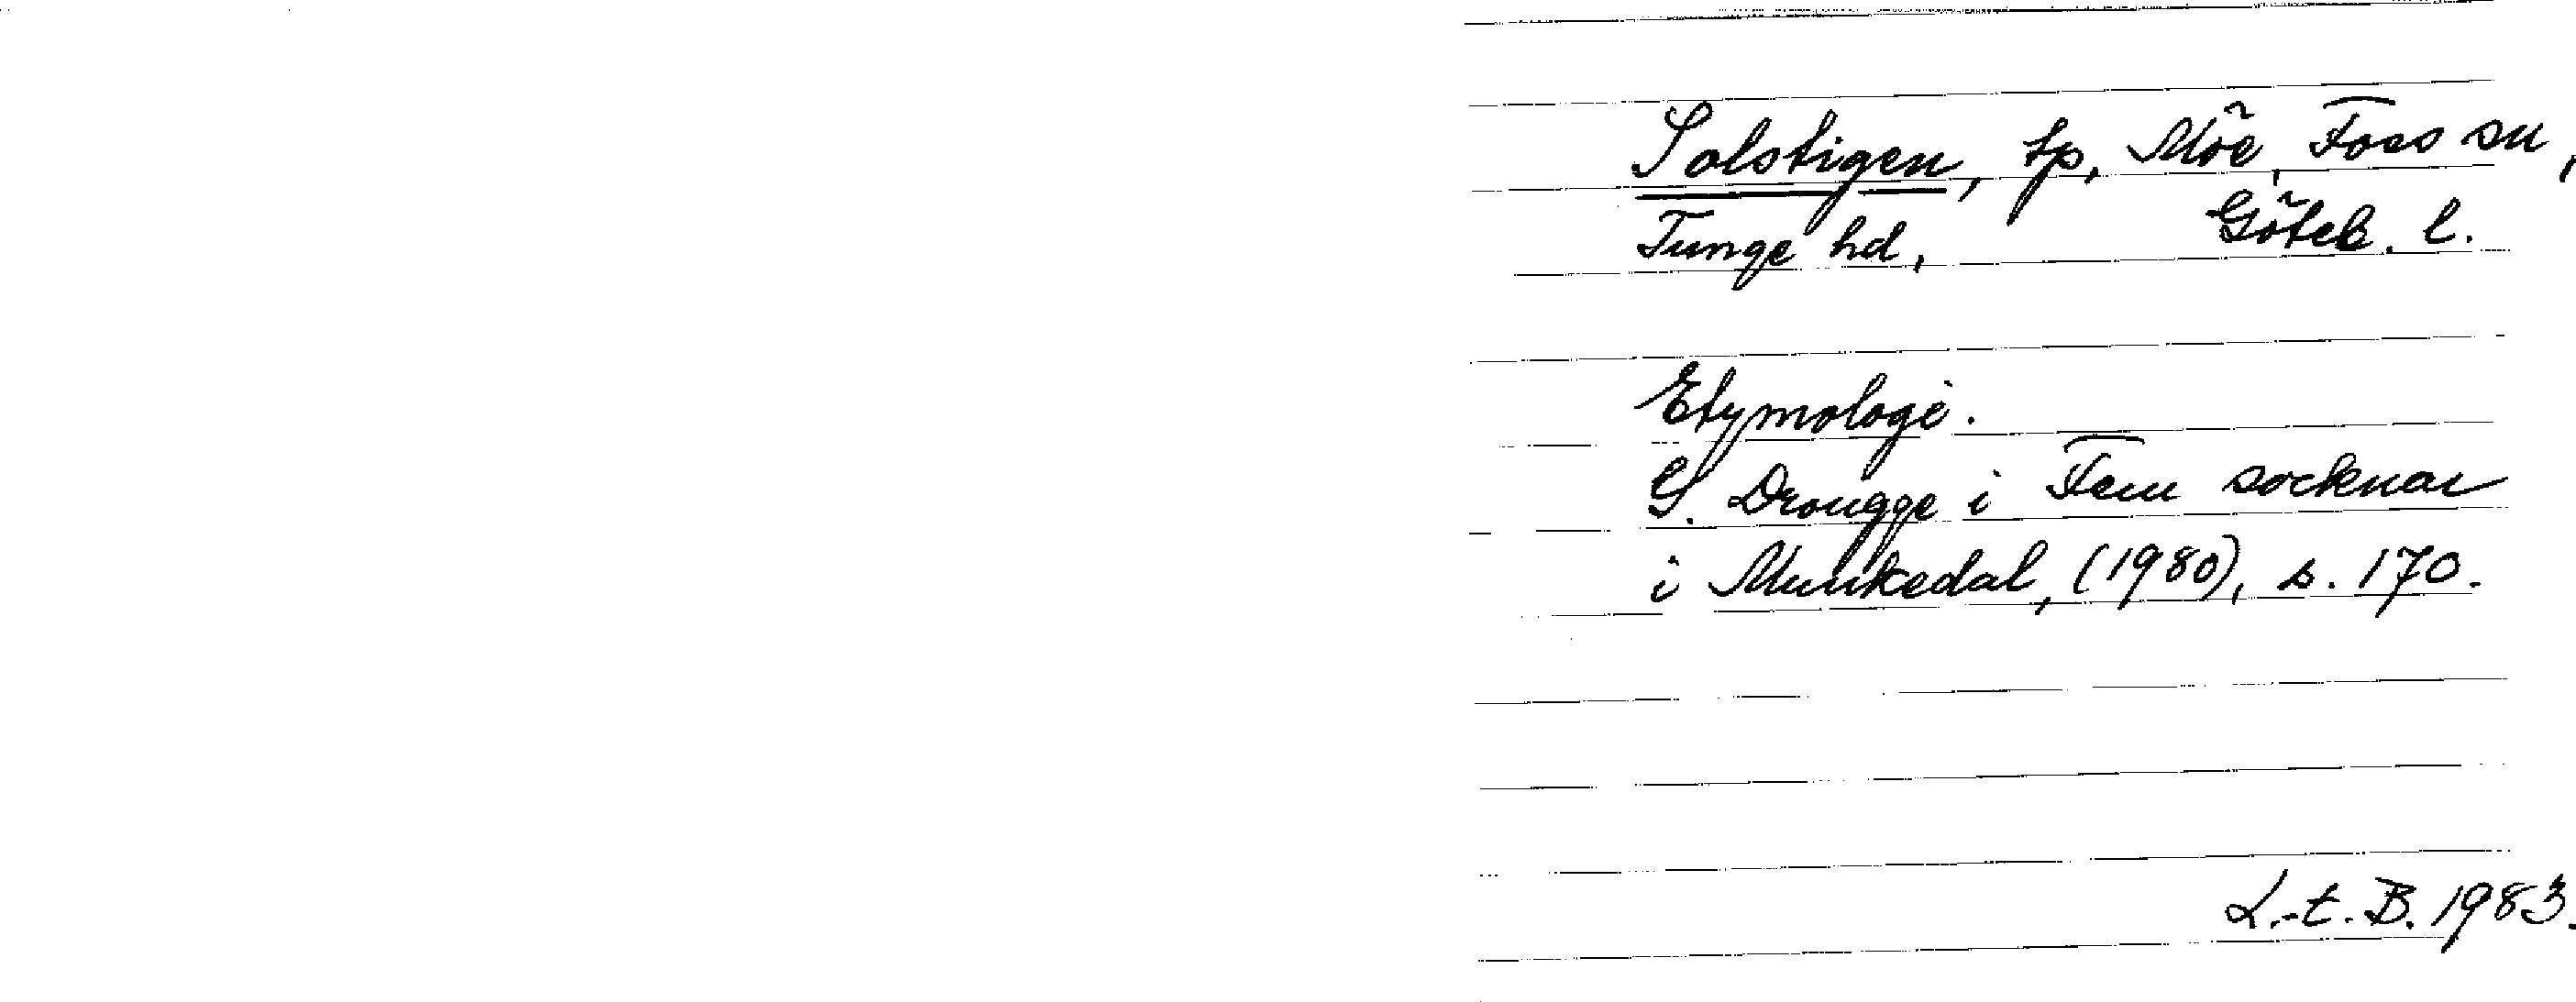 Solstigen, tp, Möe, Foss sn,
Tunge hd, Göteb. l.
Etymologi.
G. Drougge i Fem socknar
i Munkedal, (1980), s. 170.
L.-t. B. 1983.